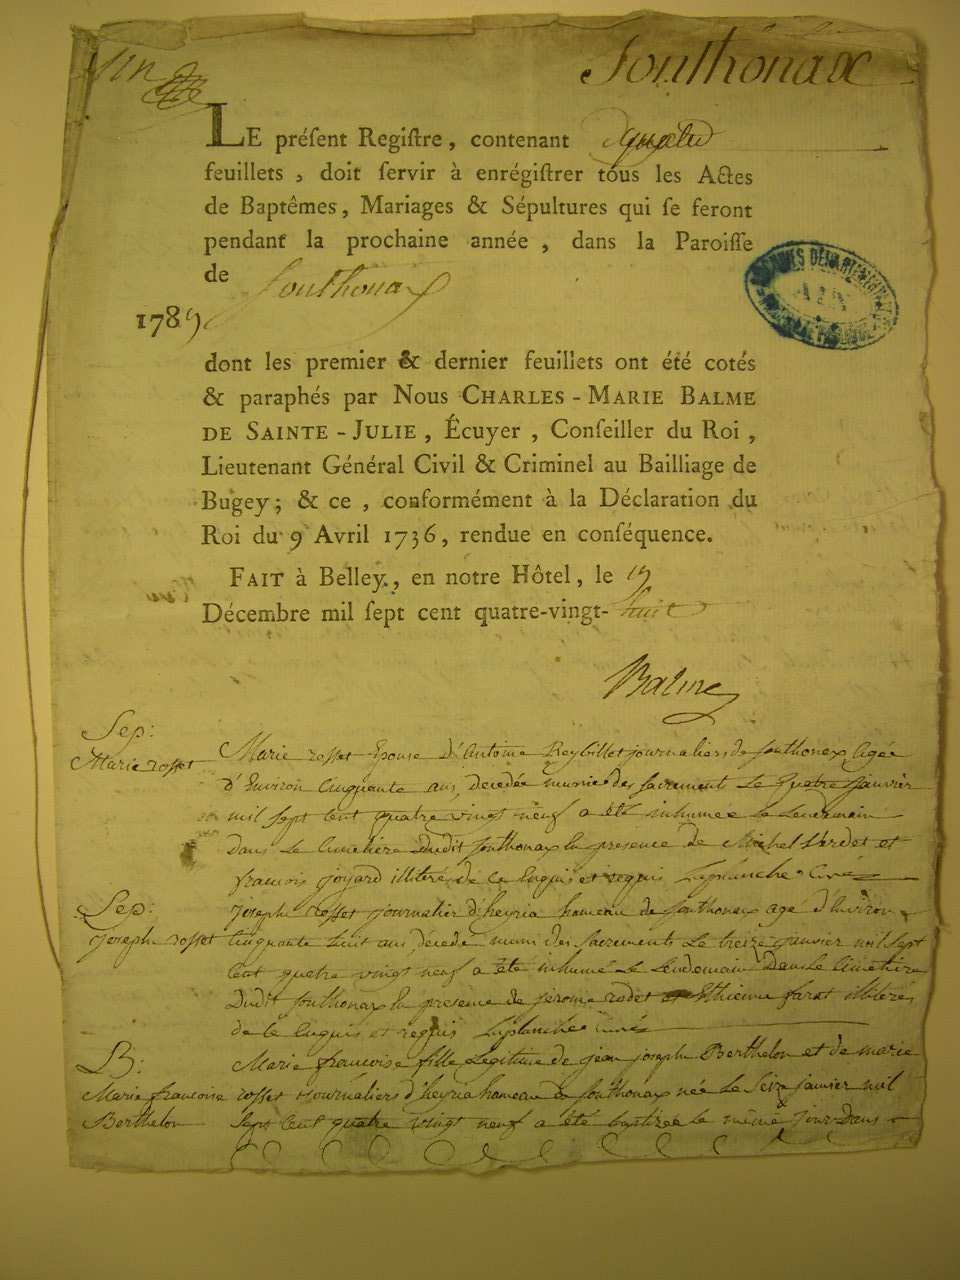 Sonthonax
LE préſent Regiſtre, contenant
feuillets, doit ſervir à enrégiſtrer tous les Actes
de Baptêmes, Mariages & Sépultures qui ſe feront
pendant la prochaine année, dans la Paroiſſe
de Sonthonax
1789
dont les premier & dernier feuillets ont été cotés
& paraphés par Nous CHARLES-MARIE BALME
DE SAINTE-JULIE, Écuyer, Conſeiller du Roi,
Lieutenant Général Civil & Criminel au Bailliage de
Bugey; & ce, conformément à la Déclaration du
Roi du 9 Avril 1736, rendue en conſéquence.
FAIT à Belley, en notre Hôtel, le 19
Décembre mil ſept cent quatre-vingt-huit
Balme
Sep:
Marie rosset
Marie rosset Epouse d'Antoine Reybillet journaliers de Sonthonax, agée
d'Environ Cinquante ans, décedée munie des sacrements Le quatre janvier
mil sept cent quatre vingt neuf a été inhumée Le Lendemain
dans Le Cimetière dudit Sonthonax En presence de Michel Verdet et
francois joyard illitérés de ce Enquis et requis Laplanche Curé
Sep:
Joseph rosset
Joseph Rosset journalier d'heyria hameau de Sonthonax agé d'Environ
Cinquante huit ans, décedé muni des sacrements Le treize janvier mil sept
Cent quatre vingt neuf a été inhumé Le Lendemain Dans Le Cimetière
Dudit Sonthonax En presence de jerome rodet et Ethienne farat illitérés
de ce Enquis et requis Laplanche Curé
B:
Marie francoise
Berthelon
Marie francoise fille Legitime de jean joseph Berthelon et de marie
rosset journaliers d'heyria hameau de Sonthonax née Le Seize janvier mil
sept Cent quatre vingt neuf a été batizée Le même jour Dans